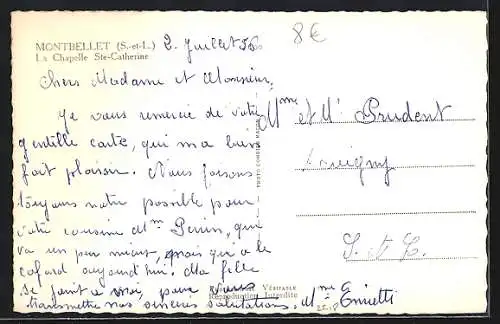 MONTBELLET (S.-et-L.)
La Chapelle Ste-Catherine
2 Juillet 56
8€
Chers Madame et Monsieur,
Je vous remercie de votre
gentille carte, qui m'a bien
fait plaisir. Nous faisons
toujours notre possible pour
votre cousine Mme Perrin, qui
va un peu mieux, mais qui a le
cafard aujourd'hui. Ma fille
se joint à moi, pour vous
transmettre nos sincères salutations. Mme
Mme et Mr Prudent
S. et L.
PHOTO COMBIER MACON
VÉRITABLE
Reproduction Interdite